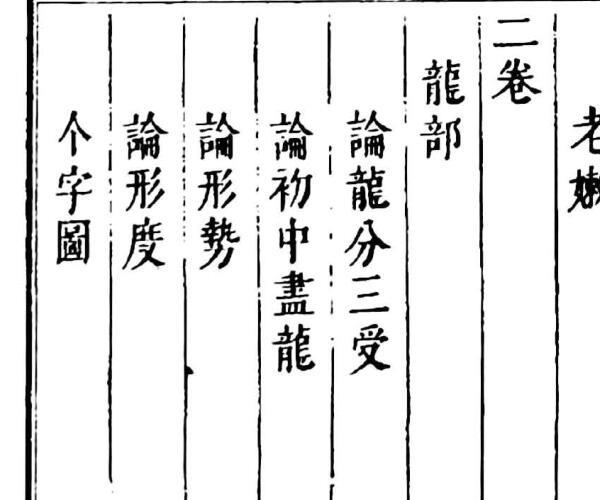 老嫩
二卷
龍部
論龍分三受
論初中盡龍
論形勢
論形度
个字圖